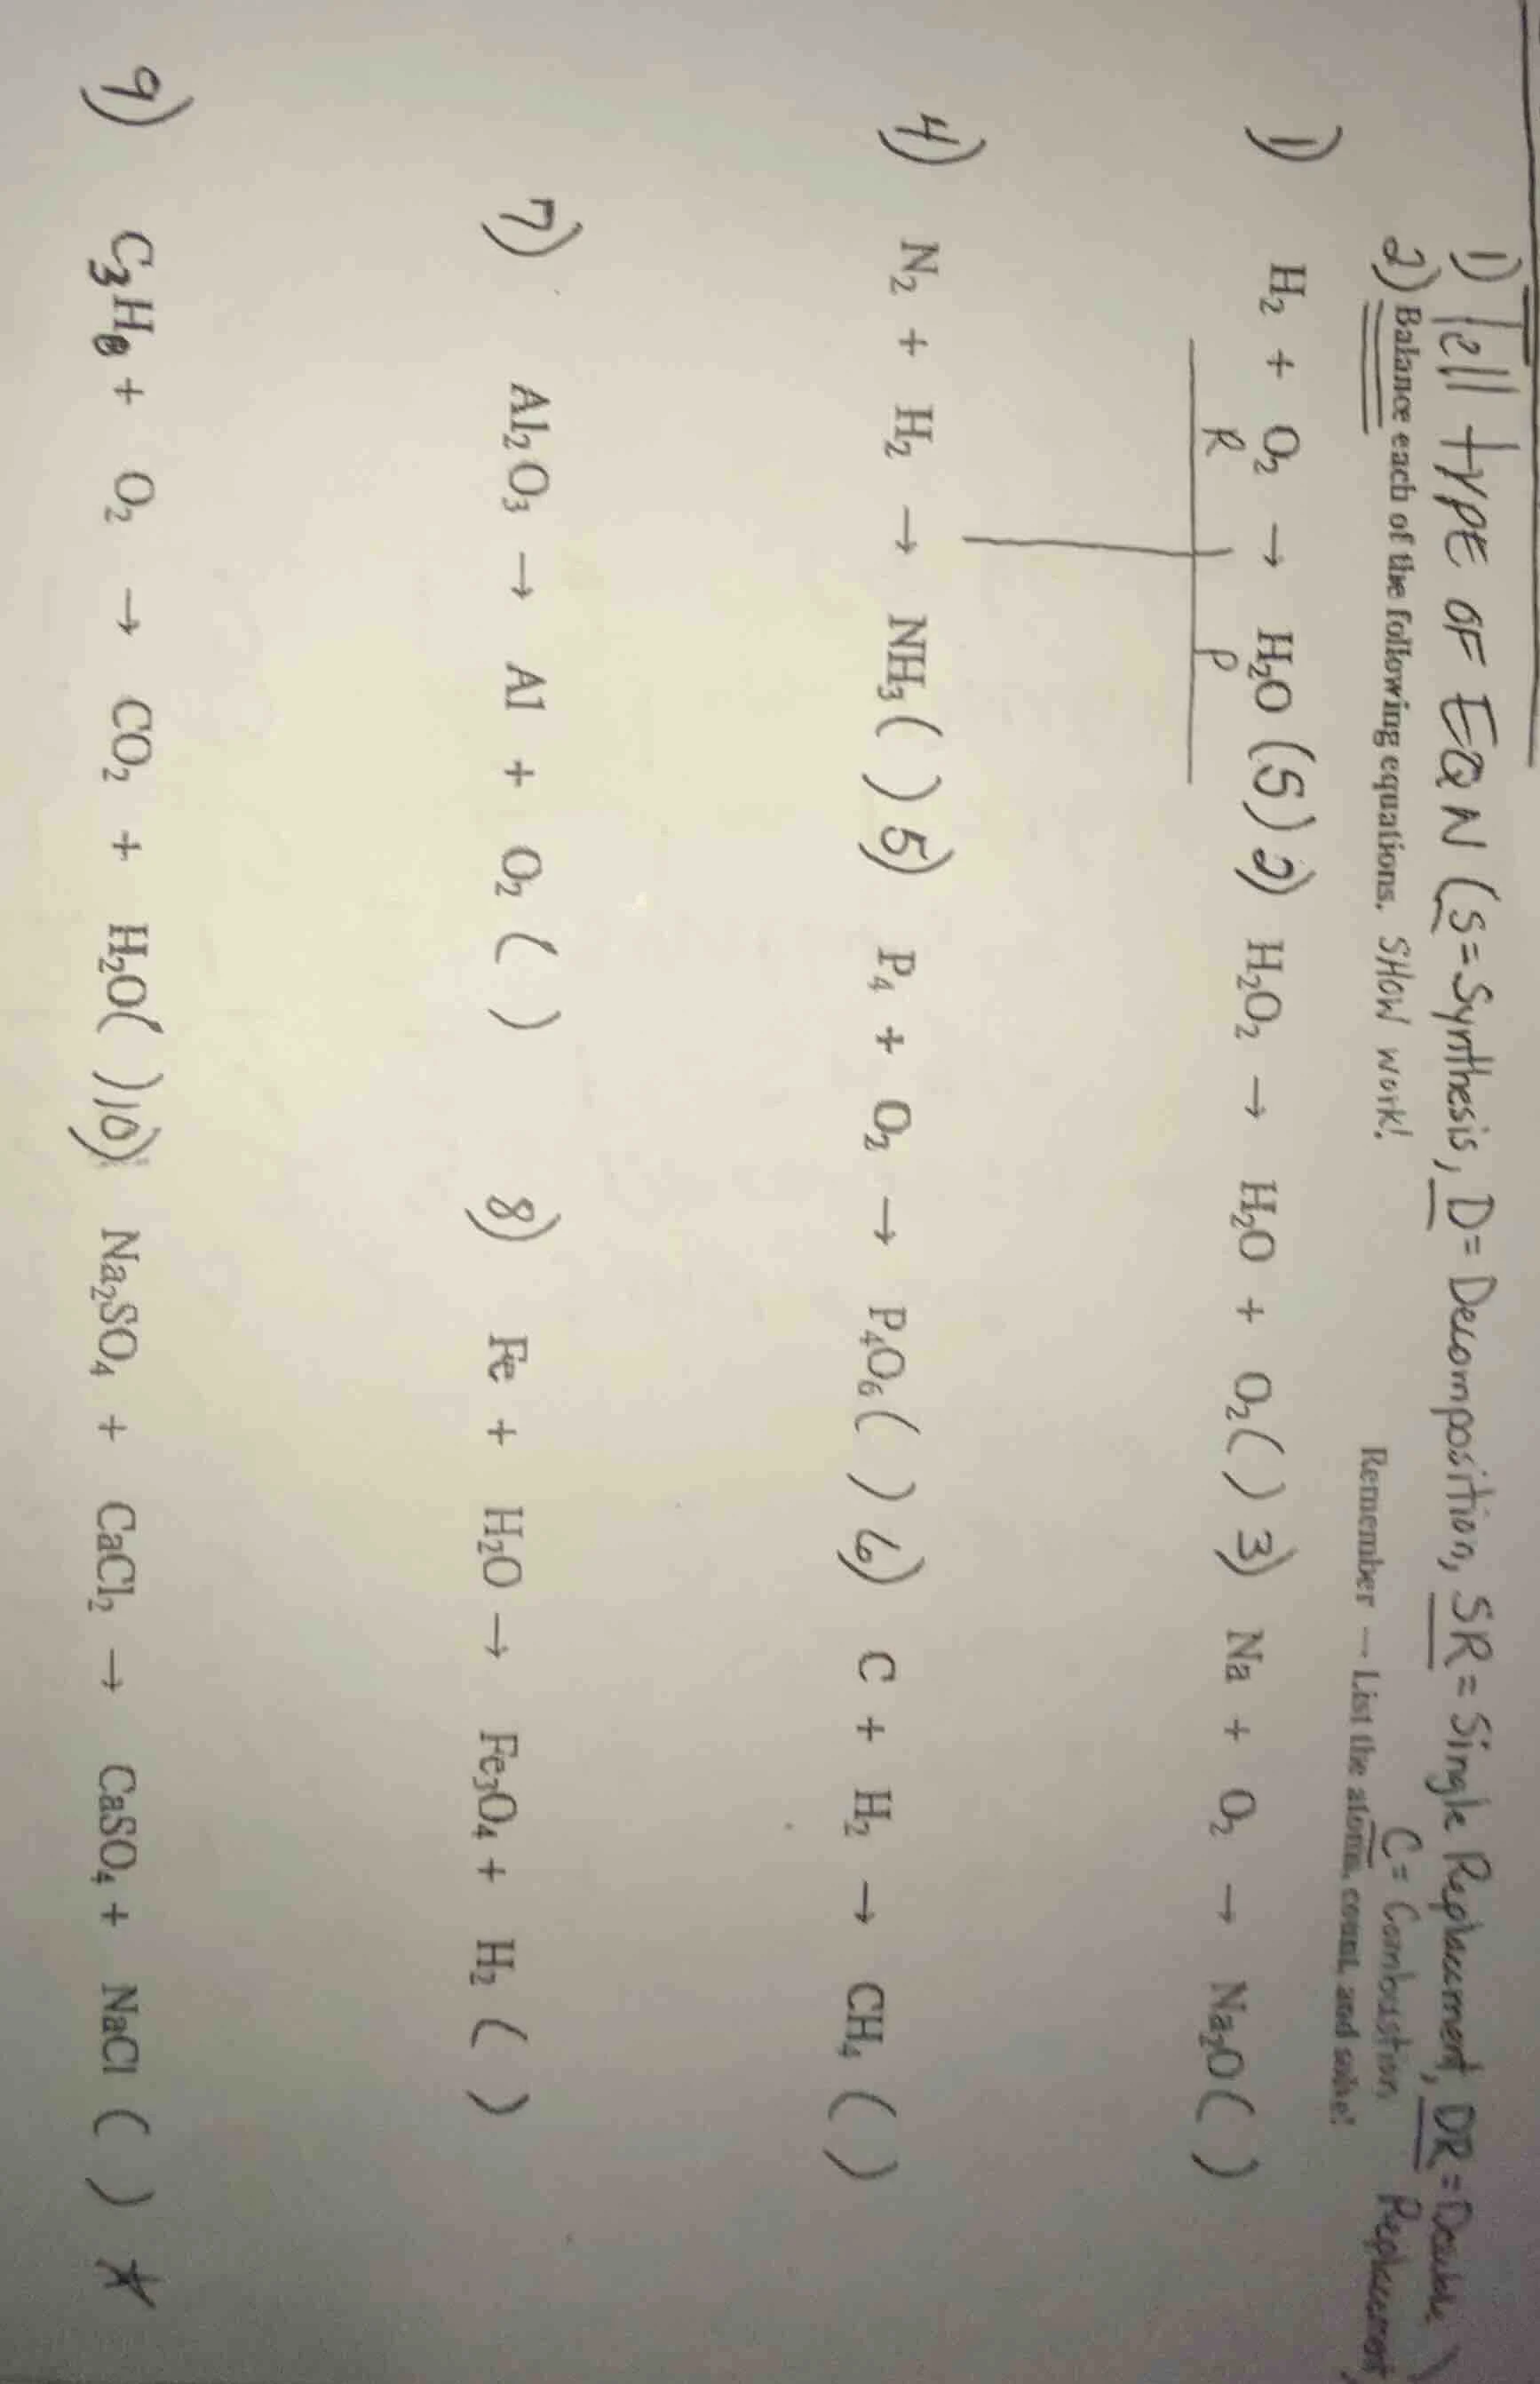 1) Tell type OF EQN (S=Synthesis, D= Decomposition, SR= Single Replacement, DR= Double Replacement)
2) Balance each of the following equations. SHOW work!
C= Combustion
Remember — List the atoms, count, and solve!
1) H₂ + O₂ → H₂O (S) 2) H₂O₂ → H₂O + O₂ ( ) 3) Na + O₂ → Na₂O ( )
R P
4) N₂ + H₂ → NH₃ ( ) 5) P₄ + O₂ → P₄O₆ ( ) 6) C + H₂ → CH₄ ( )
7) Al₂O₃ → Al + O₂ ( ) 8) Fe + H₂O → Fe₃O₄ + H₂ ( )
9) C₃H₈ + O₂ → CO₂ + H₂O ( ) 10) Na₂SO₄ + CaCl₂ → CaSO₄ + NaCl ( )